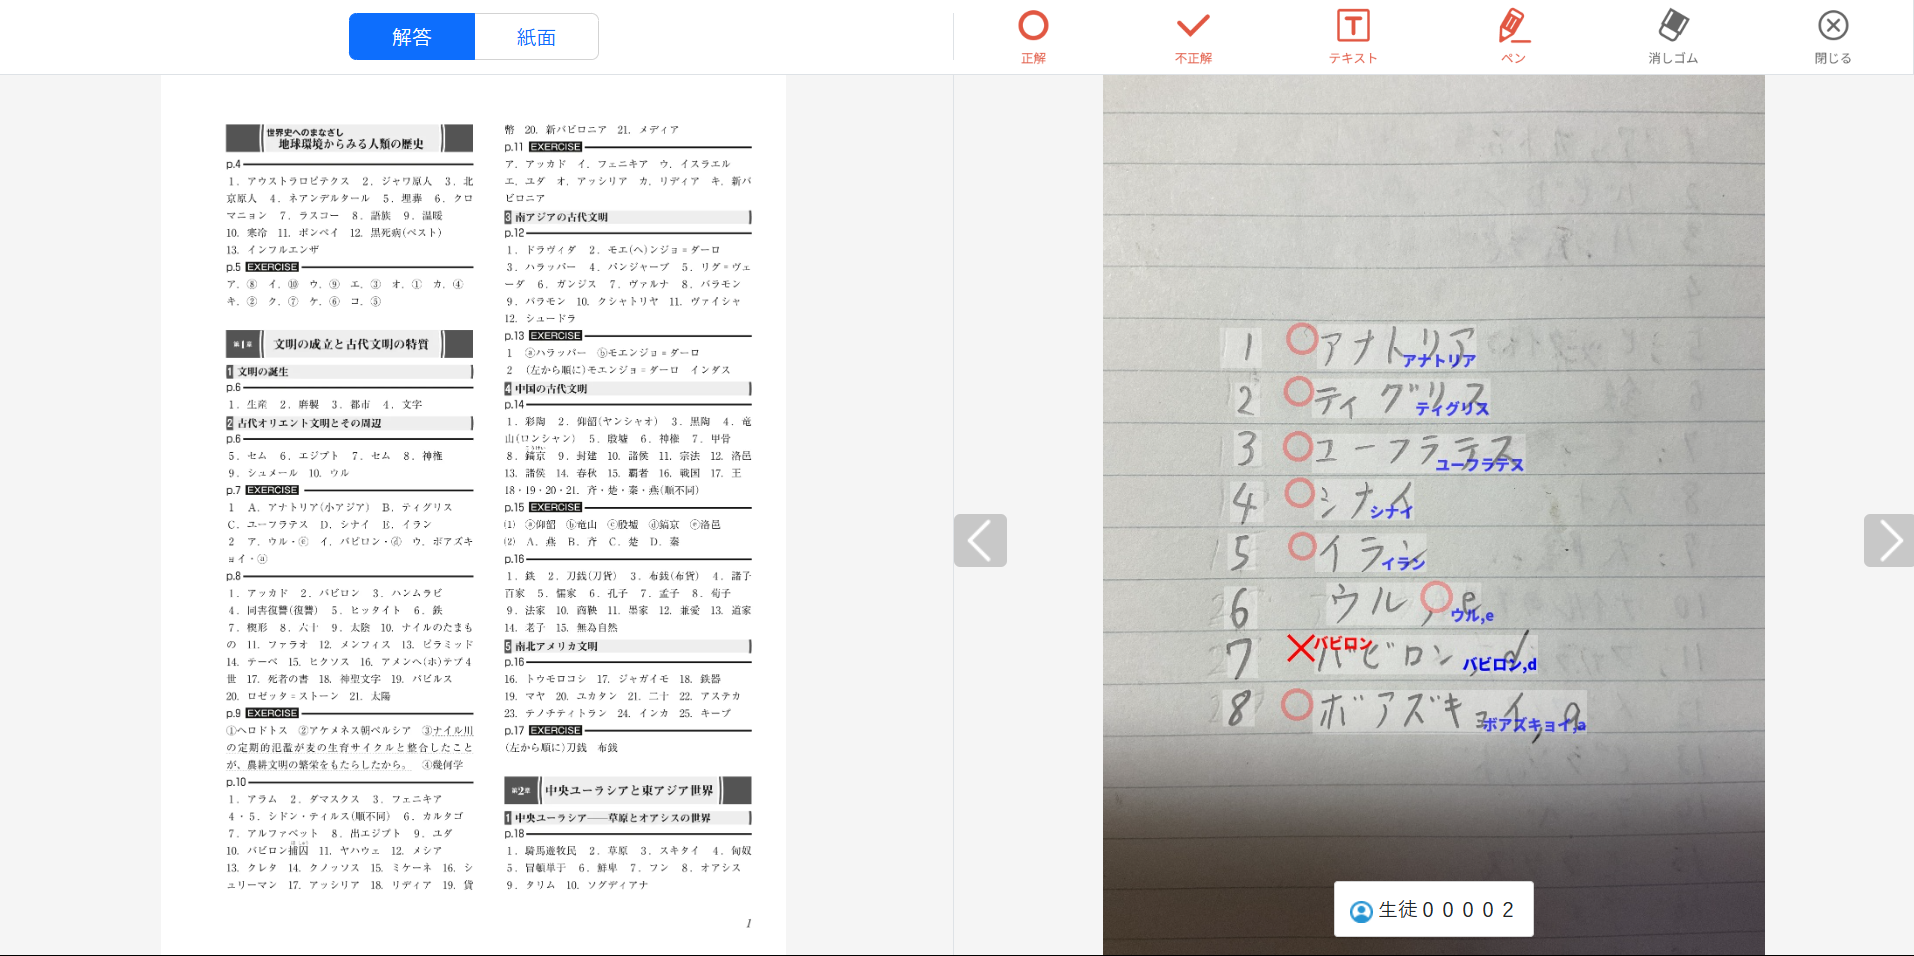 解答 紙面 正解 不正解 テキスト ペン 消しゴム 閉じる
世界史へのまなざし
地球環境からみる人類の歴史
p.4
1. アウストラロピテクス 2. ジャワ原人 3. 北
京原人 4. ネアンデルタール 5. 埋葬 6. クロ
マニョン 7. ラスコー 8. 語族 9. 温暖
10. 寒冷 11. ポンペイ 12. 黒死病(ペスト)
13. インフルエンザ
p.5 EXERCISE
ア. ⑧ イ. ⑩ ウ. ⑨ エ. ③ オ. ① カ. ④
キ. ② ク. ⑦ ケ. ⑥ コ. ⑤
第1章 文明の成立と古代文明の特質
1 文明の誕生
p.6
1. 生産 2. 磨製 3. 都市 4. 文字
2 古代オリエント文明とその周辺
p.6
5. セム 6. エジプト 7. セム 8. 神権
9. シュメール 10. ウル
p.7 EXERCISE
1 A. アナトリア(小アジア) B. ティグリス
C. ユーフラテス D. シナイ E. イラン
2 ア. ウル・ⓔ イ. バビロン・ⓓ ウ. ボアズキ
ョイ・ⓐ
p.8
1. アッカド 2. バビロン 3. ハンムラビ
4. 同害復讐(復讐) 5. ヒッタイト 6. 鉄
7. 楔形 8. 六十 9. 太陰 10. ナイルのたまも
の 11. ファラオ 12. メンフィス 13. ピラミッド
14. テーベ 15. ヒクソス 16. アメンヘ(ホ)テプ4
世 17. 死者の書 18. 神聖文字 19. パピルス
20. ロゼッタ=ストーン 21. 太陽
p.9 EXERCISE
①ヘロドトス ②アケメネス朝ペルシア ③ナイル川
の定期的氾濫が麦の生育サイクルと整合したこと
が、農耕文明の繁栄をもたらしたから。 ④幾何学
p.10
1. アラム 2. ダマスクス 3. フェニキア
4・5. シドン・ティルス(順不同) 6. カルタゴ
7. アルファベット 8. 出エジプト 9. ユダ
10. バビロン捕囚 11. ヤハウェ 12. メシア
13. クレタ 14. クノッソス 15. ミケーネ 16. シ
ュリーマン 17. アッシリア 18. リディア 19. 貨
幣 20. 新バビロニア 21. メディア
p.11 EXERCISE
ア. アッカド イ. フェニキア ウ. イスラエル
エ. ユダ オ. アッシリア カ. リディア キ. 新バ
ビロニア
3 南アジアの古代文明
p.12
1. ドラヴィダ 2. モエ(ヘ)ンジョ=ダーロ
3. ハラッパー 4. パンジャーブ 5. リグ=ヴェ
ーダ 6. ガンジス 7. ヴァルナ 8. バラモン
9. バラモン 10. クシャトリヤ 11. ヴァイシャ
12. シュードラ
p.13 EXERCISE
1 ⓐハラッパー ⓑモエンジョ=ダーロ
2 (左から順に)モエンジョ=ダーロ インダス
4 中国の古代文明
p.14
1. 彩陶 2. 仰韶(ヤンシャオ) 3. 黒陶 4. 竜
山(ロンシャン) 5. 殷墟 6. 神権 7. 甲骨
8. 鎬京 9. 封建 10. 諸侯 11. 宗法 12. 洛邑
13. 諸侯 14. 春秋 15. 覇者 16. 戦国 17. 王
18・19・20・21. 斉・楚・秦・燕(順不同)
p.15 EXERCISE
(1) ⓐ仰韶 ⓑ竜山 ⓒ殷墟 ⓓ鎬京 ⓔ洛邑
(2) A. 燕 B. 斉 C. 楚 D. 秦
p.16
1. 鉄 2. 刀銭(刀貨) 3. 布銭(布貨) 4. 諸子
百家 5. 儒家 6. 孔子 7. 孟子 8. 荀子
9. 法家 10. 商鞅 11. 墨家 12. 兼愛 13. 道家
14. 老子 15. 無為自然
5 南北アメリカ文明
p.16
16. トウモロコシ 17. ジャガイモ 18. 鉄器
19. マヤ 20. ユカタン 21. 二十 22. アステカ
23. テノチティトラン 24. インカ 25. キープ
p.17 EXERCISE
(左から順に)刀銭 布銭
第2章 中央ユーラシアと東アジア世界
1 中央ユーラシア――草原とオアシスの世界
p.18
1. 騎馬遊牧民 2. 草原 3. スキタイ 4. 匈奴
5. 冒頓単于 6. 鮮卑 7. フン 8. オアシス
9. タリム 10. ソグディアナ
1
1 アナトリア
アナトリア
2 ティグリス
ティグリス
3 ユーフラテス
ユーフラテス
4 シナイ
シナイ
5 イラン
イラン
6 ウル, e
ウル,e
バビロン
7 バビロン, d
バビロン,d
8 ボアズキョイ, a
ボアズキョイ,a
生徒00002